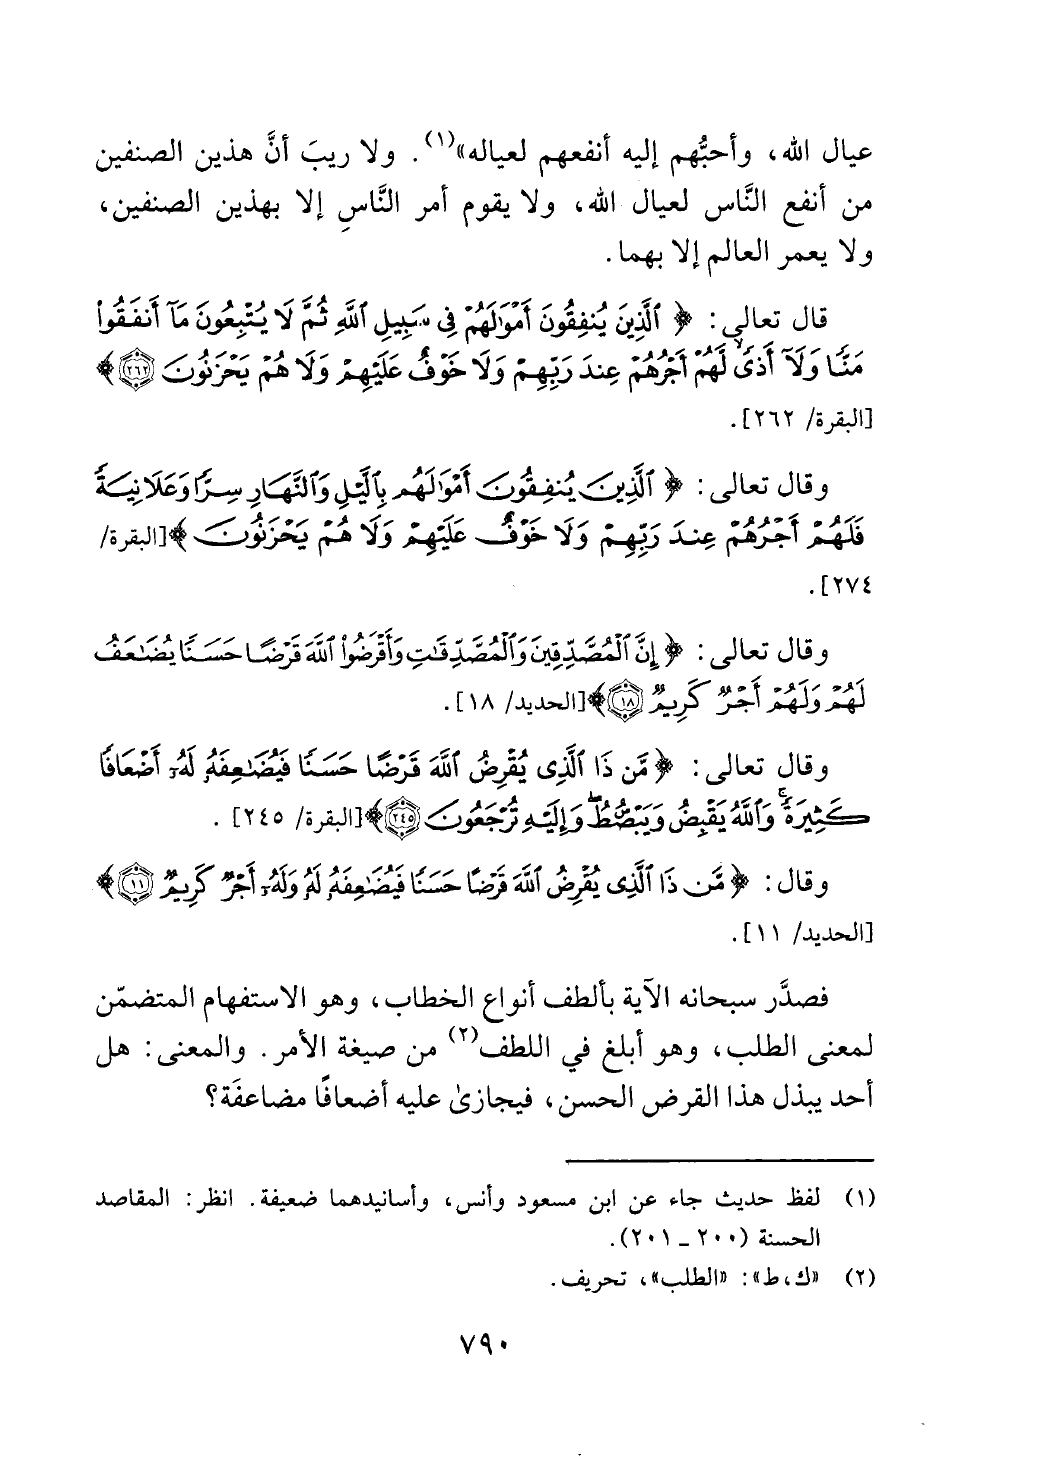 عيال الله، وأحبُّهم إليه أنفعهم لعياله»(١). ولا ريبَ أنَّ هذين الصنفين
من أنفع النَّاس لعيال الله، ولا يقوم أمر النَّاسِ إلا بهذين الصنفين،
ولا يعمر العالم إلا بهما.
قال تعالى: ﴿ٱلَّذِينَ يُنفِقُونَ أَمْوَٰلَهُمْ فِى سَبِيلِ ٱللَّهِ ثُمَّ لَا يُتْبِعُونَ مَآ أَنفَقُوا۟
مَنًّا وَلَآ أَذًىۙ لَّهُمْ أَجْرُهُمْ عِندَ رَبِّهِمْ وَلَا خَوْفٌ عَلَيْهِمْ وَلَا هُمْ يَحْزَنُونَ ٢٦٢﴾
[البقرة/ ٢٦٢].
وقال تعالى: ﴿ٱلَّذِينَ يُنفِقُونَ أَمْوَٰلَهُم بِٱلَّيْلِ وَٱلنَّهَارِ سِرًّا وَعَلَانِيَةً
فَلَهُمْ أَجْرُهُمْ عِندَ رَبِّهِمْ وَلَا خَوْفٌ عَلَيْهِمْ وَلَا هُمْ يَحْزَنُونَ﴾ [البقرة/
٢٧٤].
وقال تعالى: ﴿إِنَّ ٱلْمُصَّدِّقِينَ وَٱلْمُصَّدِّقَٰتِ وَأَقْرَضُوا۟ ٱللَّهَ قَرْضًا حَسَنًا يُضَٰعَفُ
لَهُمْ وَلَهُمْ أَجْرٌ كَرِيمٌ ١٨﴾ [الحديد/ ١٨].
وقال تعالى: ﴿مَّن ذَا ٱلَّذِى يُقْرِضُ ٱللَّهَ قَرْضًا حَسَنًا فَيُضَٰعِفَهُۥ لَهُۥٓ أَضْعَافًا
كَثِيرَةًۚ وَٱللَّهُ يَقْبِضُ وَيَبْصُۜطُ وَإِلَيْهِ تُرْجَعُونَ ٢٤٥﴾ [البقرة/ ٢٤٥].
وقال: ﴿مَّن ذَا ٱلَّذِى يُقْرِضُ ٱللَّهَ قَرْضًا حَسَنًا فَيُضَٰعِفَهُۥ لَهُۥ وَلَهُۥٓ أَجْرٌ كَرِيمٌ ١١﴾
[الحديد/ ١١].
فصدَّر سبحانه الآية بألطف أنواع الخطاب، وهو الاستفهام المتضمّن
لمعنى الطلب، وهو أبلغ في اللطف(٢) من صيغة الأمر. والمعنى: هل
أحد يبذل هذا القرض الحسن، فيجازىٰ عليه أضعافًا مضاعفَة؟
(١) لفظ حديث جاء عن ابن مسعود وأنس، وأسانيدهما ضعيفة. انظر: المقاصد
الحسنة (٢٠٠ ـ ٢٠١).
(٢) «ك، ط»: «الطلب»، تحريف.
٧٩٠